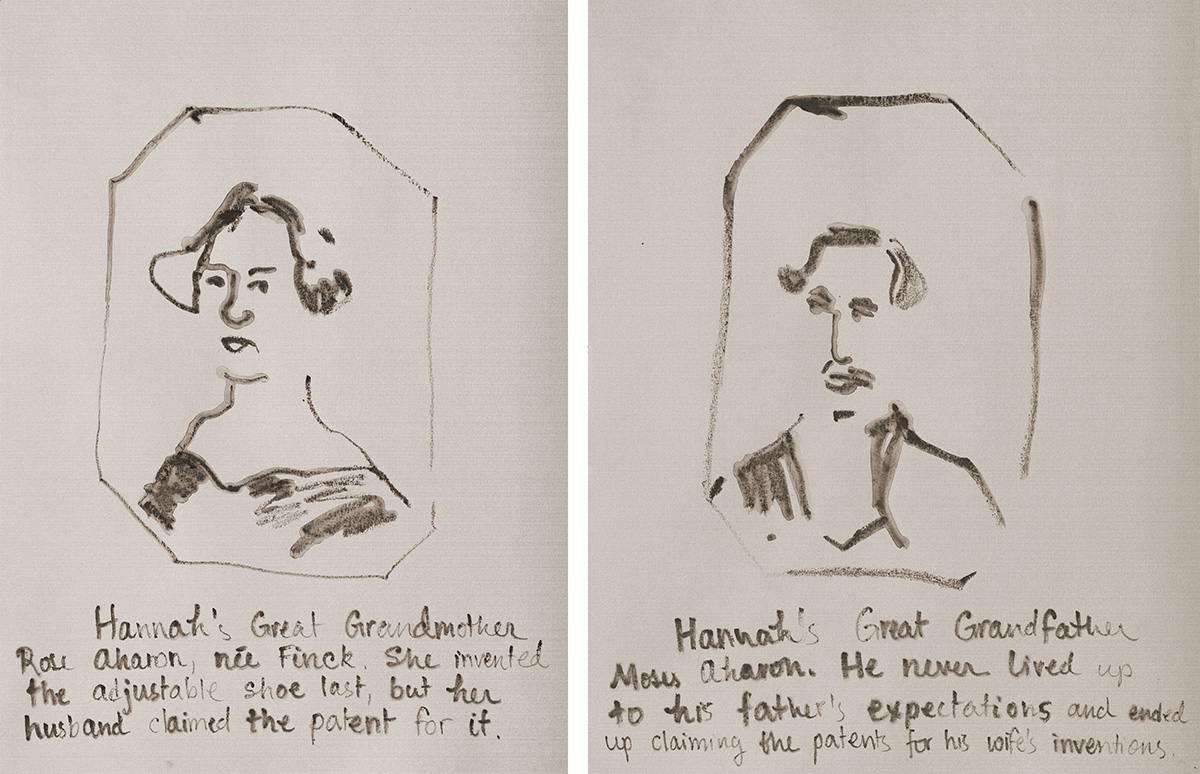 Hannah's Great Grandmother
Rose Aharon, née Finck. She invented
the adjustable shoe last, but her
husband claimed the patent for it.
Hannah's Great Grandfather
Moses Aharon. He never lived up
to his father's expectations and ended
up claiming the patents for his wife's inventions.